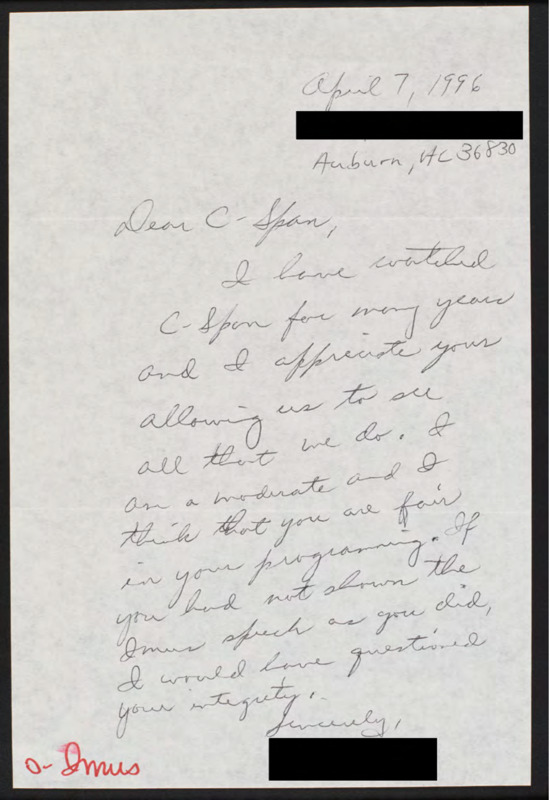 April 7, 1996
Auburn, AL 36830
Dear C-Span,
I have watched
C-Span for many years
and I appreciate your
allowing us to see
all that we do. I
am a moderate and I
think that you are fair
in your programming. If
you had not shown the
Imus speech as you did,
I would have questioned
your integrity.
Sincerely,
o- Imus